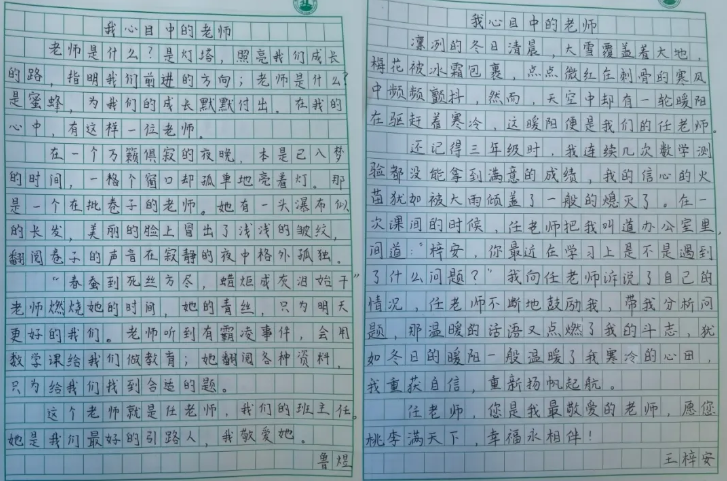 我心目中的老师
老师是什么？是灯塔，照亮我们成长
的路，指明我们前进的方向；老师是什么？
是蜜蜂，为我们的成长默默付出。在我的
心中，有这样一位老师。
在一个万籁俱寂的夜晚，本是已入梦
的时间，一格个窗口却孤单地亮着灯。那
是一个在批卷子的老师。她有一头瀑布似
的长发，美丽的脸上冒出了浅浅的皱纹，
翻阅卷子的声音在寂静的夜中格外孤独。
“春蚕到死丝方尽，蜡炬成灰泪始干”
老师燃烧她的时间，她的青丝，只为明天
更好的我们。老师听到有霸凌事件，会用
数学课给我们做教育；她翻阅各种资料，
只为给我们找到合适的题。
这个老师就是任老师，我们的班主任。
她是我们最好的引路人，我敬爱她。
鲁煜
我心目中的老师
凛冽的冬日清晨，大雪覆盖着大地，
梅花被冰霜包裹，点点微红在刺骨的寒风
中频频颤抖，然而，天空中却有一轮暖阳
在驱赶着寒冷，这暖阳便是我们的任老师。
还记得三年级时，我连续几次数学测
验都没能拿到满意的成绩，我的信心的火
苗犹如被大雨倾盖了一般的熄灭了。在一
次课间的时候，任老师把我叫道办公室里，
间道：“梓安，你最近在学习上是不是遇到
了什么问题？”我向任老师诉说了自己的
情况，任老师不断地鼓励我，带我分析问
题，那温暖的话语又点燃了我的斗志，犹
如冬日的暖阳一般温暖了我寒冷的心田，
我重获自信，重新扬帆起航。
任老师，您是我最敬爱的老师，愿您
桃李满天下，幸福永相伴！
王梓安